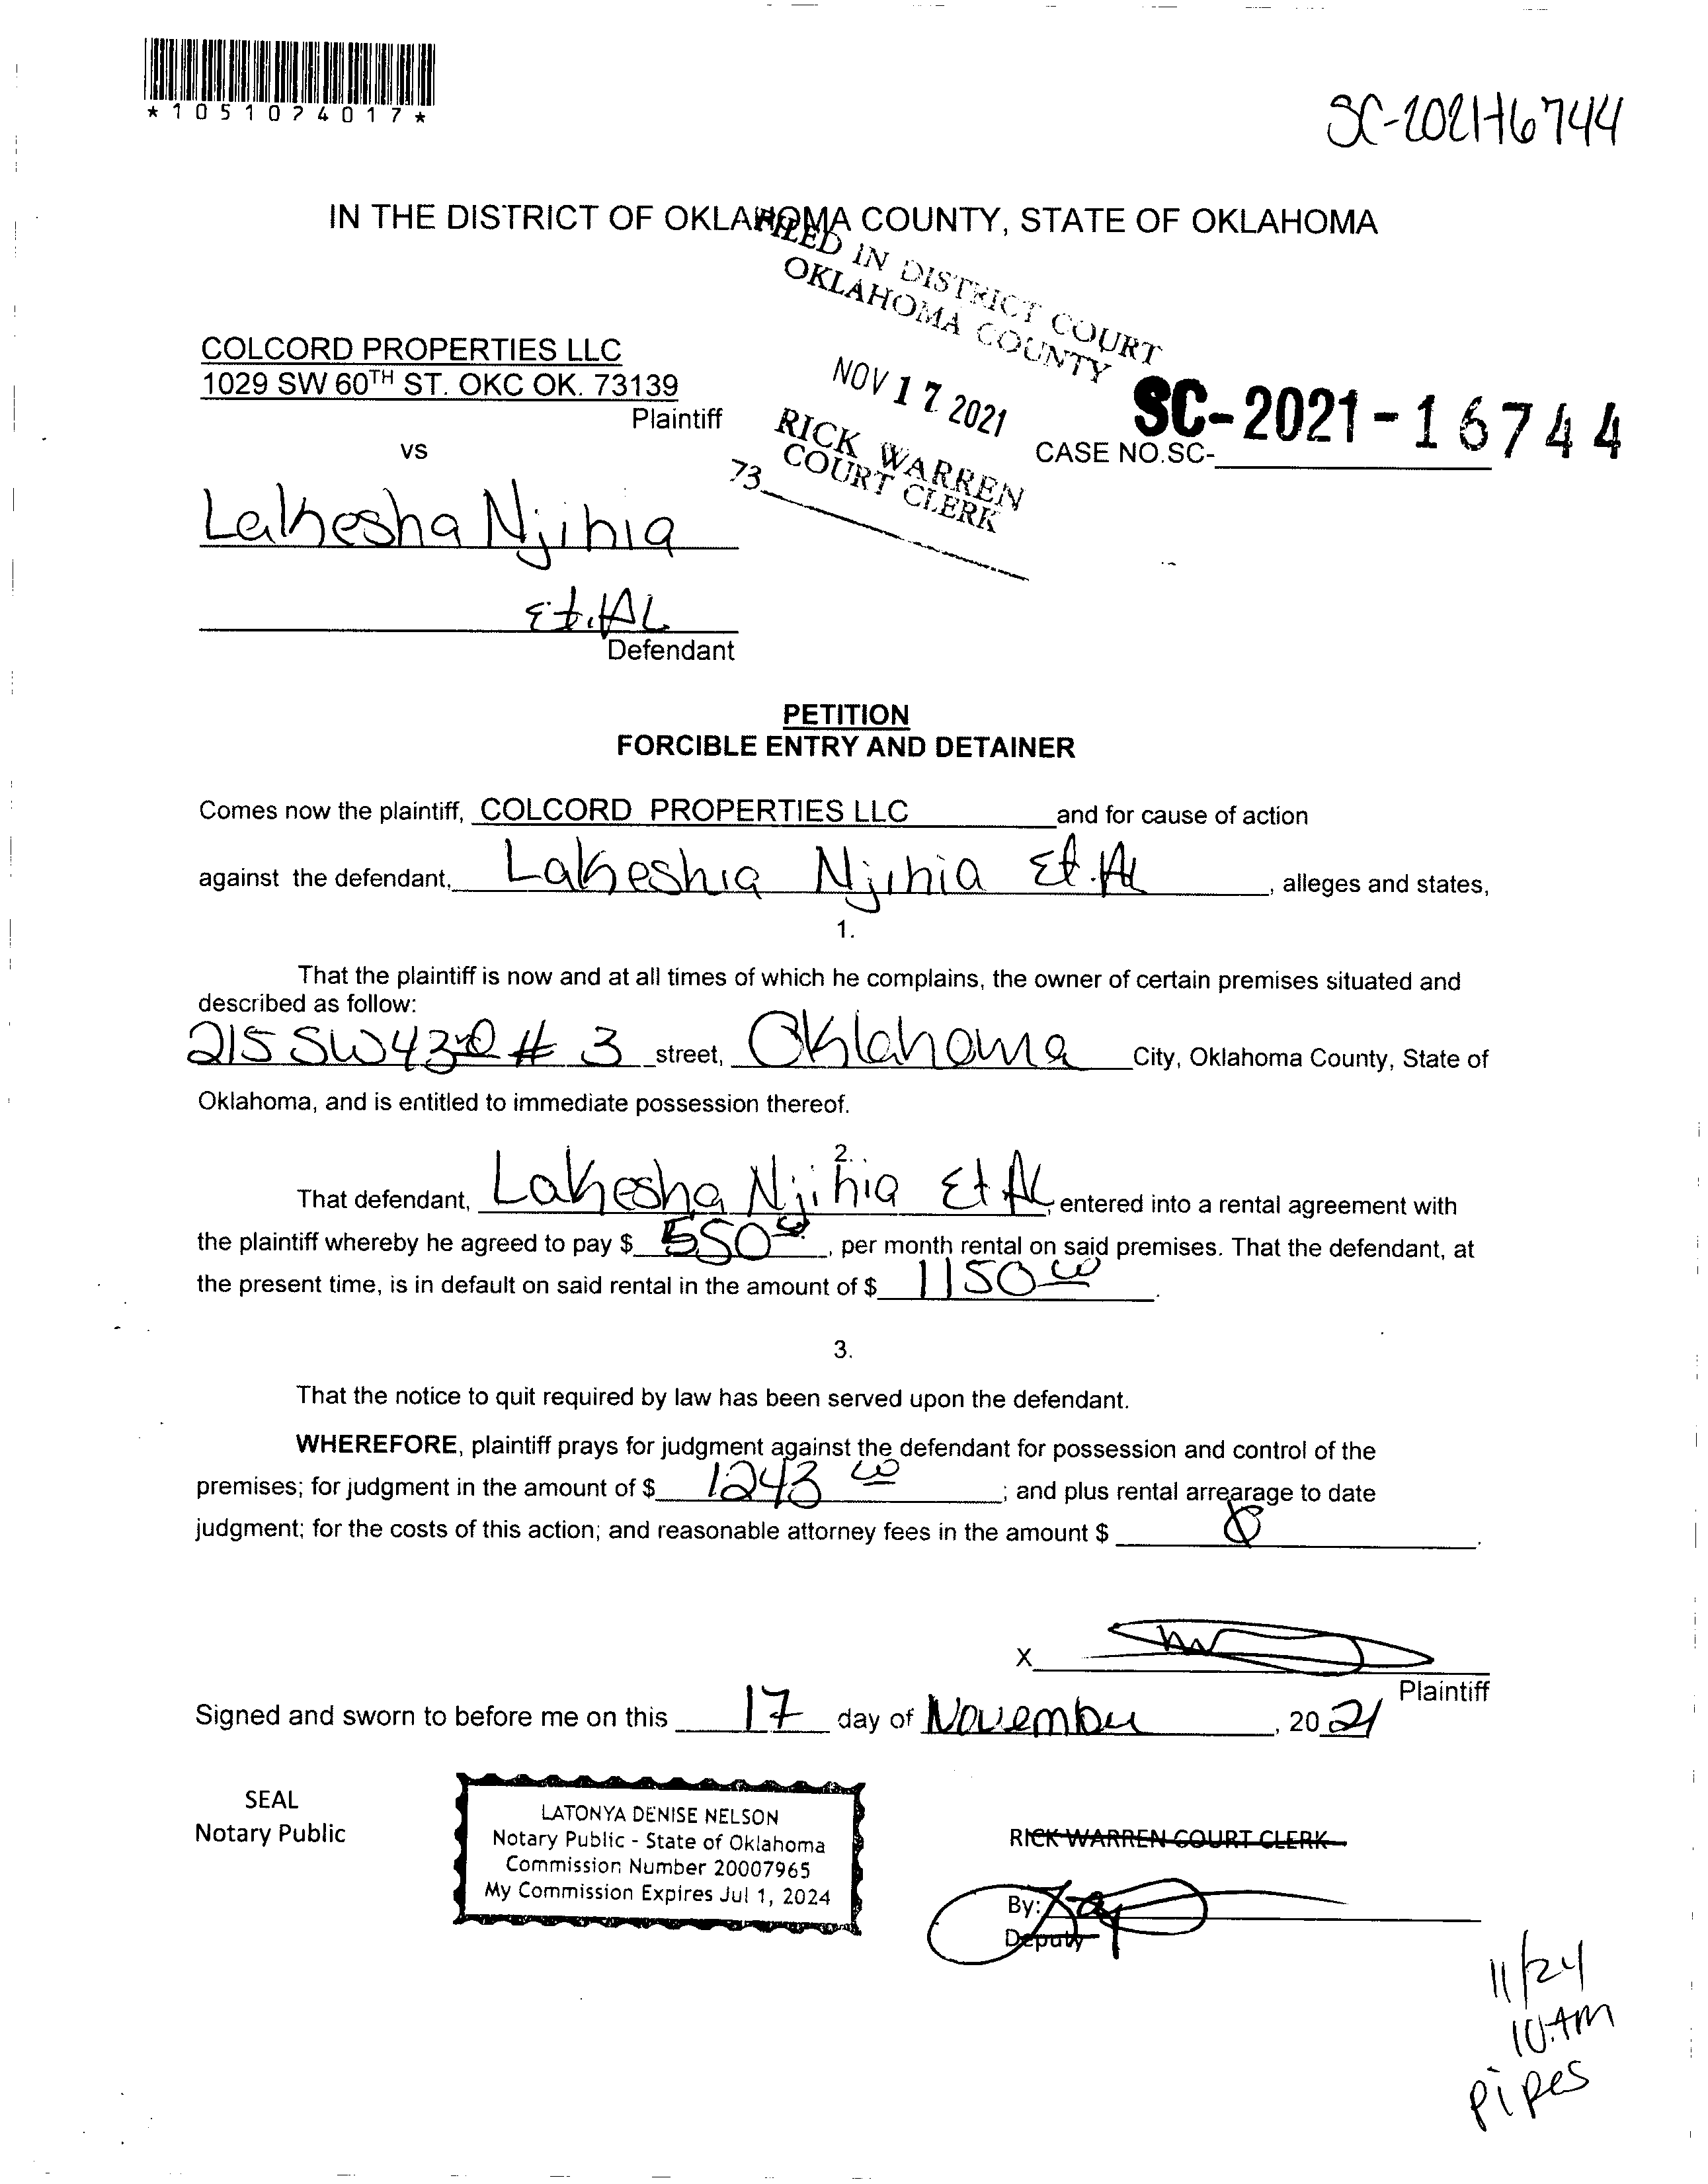 *1051024017*
SC-2021-16744
IN THE DISTRICT OF OKLAHOMA COUNTY, STATE OF OKLAHOMA
FILED IN DISTRICT COURT
OKLAHOMA COUNTY
COLCORD PROPERTIES LLC
1029 SW 60TH ST. OKC OK. 73139
Plaintiff
NOV 17 2021
SC-2021-16744
vs
RICK WARREN
COURT CLERK
CASE NO.SC-
73
Lakesha Njihia
Et.AL
Defendant
PETITION
FORCIBLE ENTRY AND DETAINER
Comes now the plaintiff, COLCORD PROPERTIES LLC and for cause of action
against the defendant, Lakeshia Njihia Et.AL, alleges and states,
1.
That the plaintiff is now and at all times of which he complains, the owner of certain premises situated and
described as follow:
215 SW 43rd # 3 street, Oklahoma City, Oklahoma County, State of
Oklahoma, and is entitled to immediate possession thereof.
2.
That defendant, Lakesha Njihia Et AL, entered into a rental agreement with
the plaintiff whereby he agreed to pay $ 550 00, per month rental on said premises. That the defendant, at
the present time, is in default on said rental in the amount of $ 1150 00.
3.
That the notice to quit required by law has been served upon the defendant.
WHEREFORE, plaintiff prays for judgment against the defendant for possession and control of the
premises; for judgment in the amount of $ 1243 00; and plus rental arrearage to date
judgment; for the costs of this action; and reasonable attorney fees in the amount $
X
Plaintiff
Signed and sworn to before me on this 17 day of November, 2021
SEAL
Notary Public
LATONYA DENISE NELSON
Notary Public - State of Oklahoma
Commission Number 20007965
My Commission Expires Jul 1, 2024
RICK WARREN COURT CLERK
By:
Deputy
11/24
10:AM
pipes